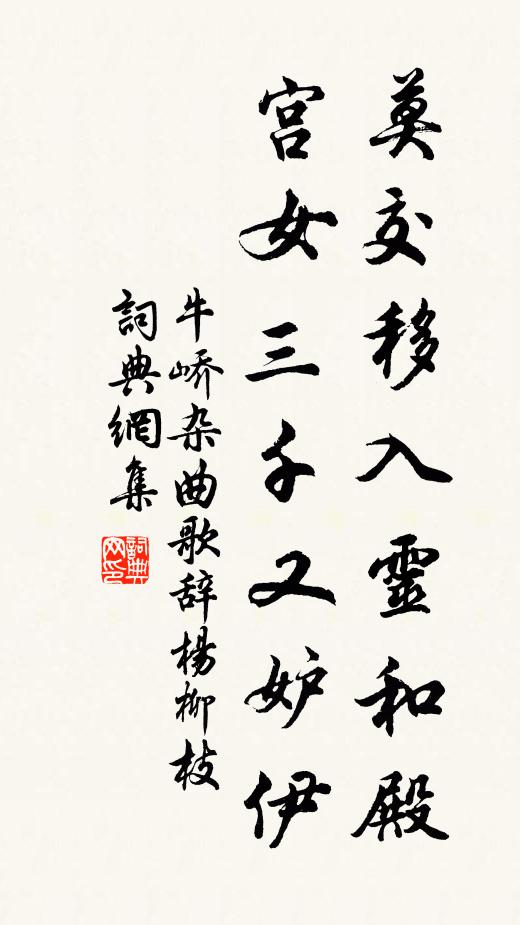 莫交移入靈和殿
宫女三千又妒伊
牛峤杂曲歌辞楊柳枝
詞典網集
詞典网印